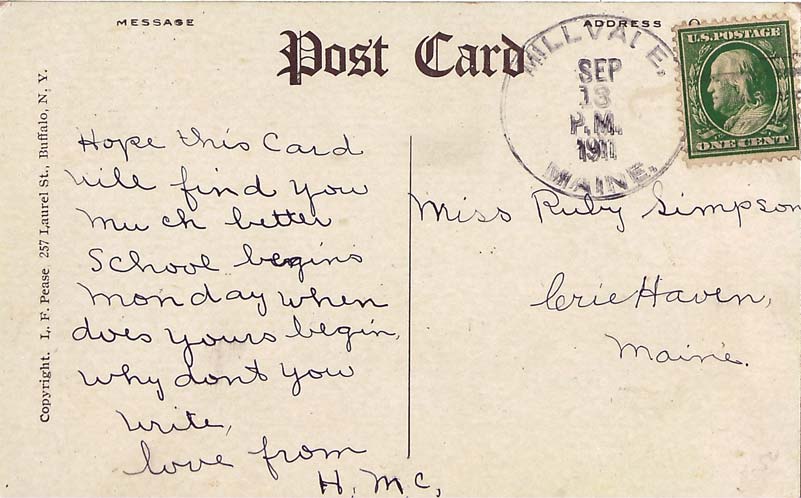 MESSAGE
ADDRESS
Post Card
MILLVALE,
SEP
13
P.M.
1911
MAINE.
U.S. POSTAGE
ONE CENT
Copyright. L. F. Pease. 257 Laurel St., Buffalo, N. Y.
Hope this Card
will find you
much better
School begins
monday when
does yours begin,
why dont you
write,
love from
H. Mc,
Miss Ruby Simpson
Crie Haven,
Maine.